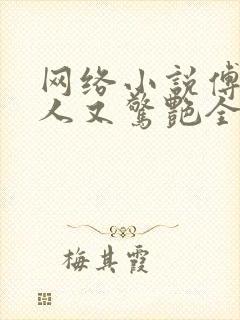 网络小说傅
人又驚艷全
梅其霞